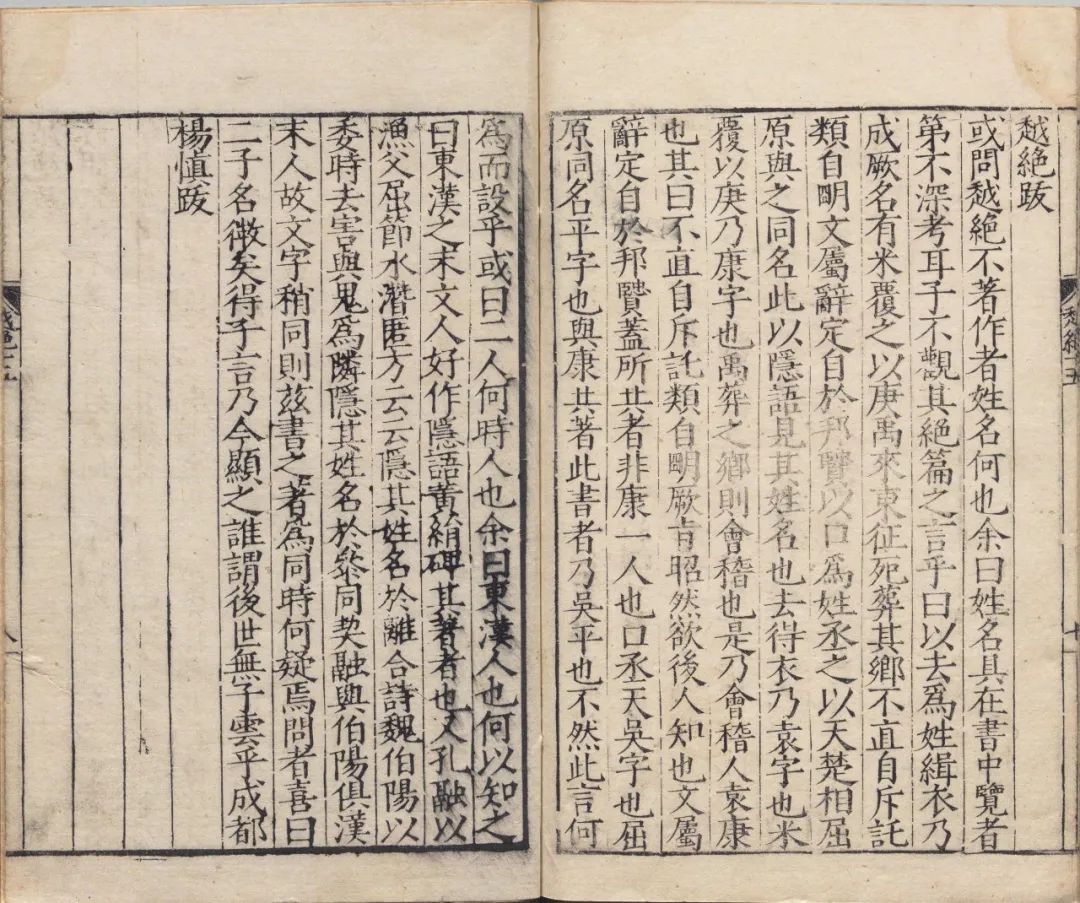 越絶跋
或問越絶不著作者姓名何也余曰姓名具在書中覽者
第不深考耳子不觀其絶篇之言乎曰以去爲姓緝衣乃
成厥名有米覆之以庚禹來東征死葬其鄉不直自斥託
類自明文屬辭定自於邦賢以口爲姓丞之以天楚相屈
原與之同名此以隱語見其姓名也去得衣乃袁字也米
覆以庚乃康字也禹葬之鄉則會稽也是乃會稽人袁康
也其曰不直自斥託類自明厥旨昭然欲後人知也文屬
辭定自於邦賢蓋所共者非康一人也口丞天吳字也屈
原同名平字也與康共著此書者乃吳平也不然此言何
爲而設乎或曰二人何時人也余曰東漢人也何以知之
曰東漢之末文人好作隱語黃絹碑其著者也又孔融以
漁父屈節水潛匿方云云隱其姓名於離合詩魏伯陽以
委時去害與鬼爲隣隱其姓名於叅同契融與伯陽俱漢
末人故文字稍同則兹書之著爲同時何疑焉問者喜曰
二子名微矣得子言乃今顯之誰謂後世無子雲乎成都
楊慎跋